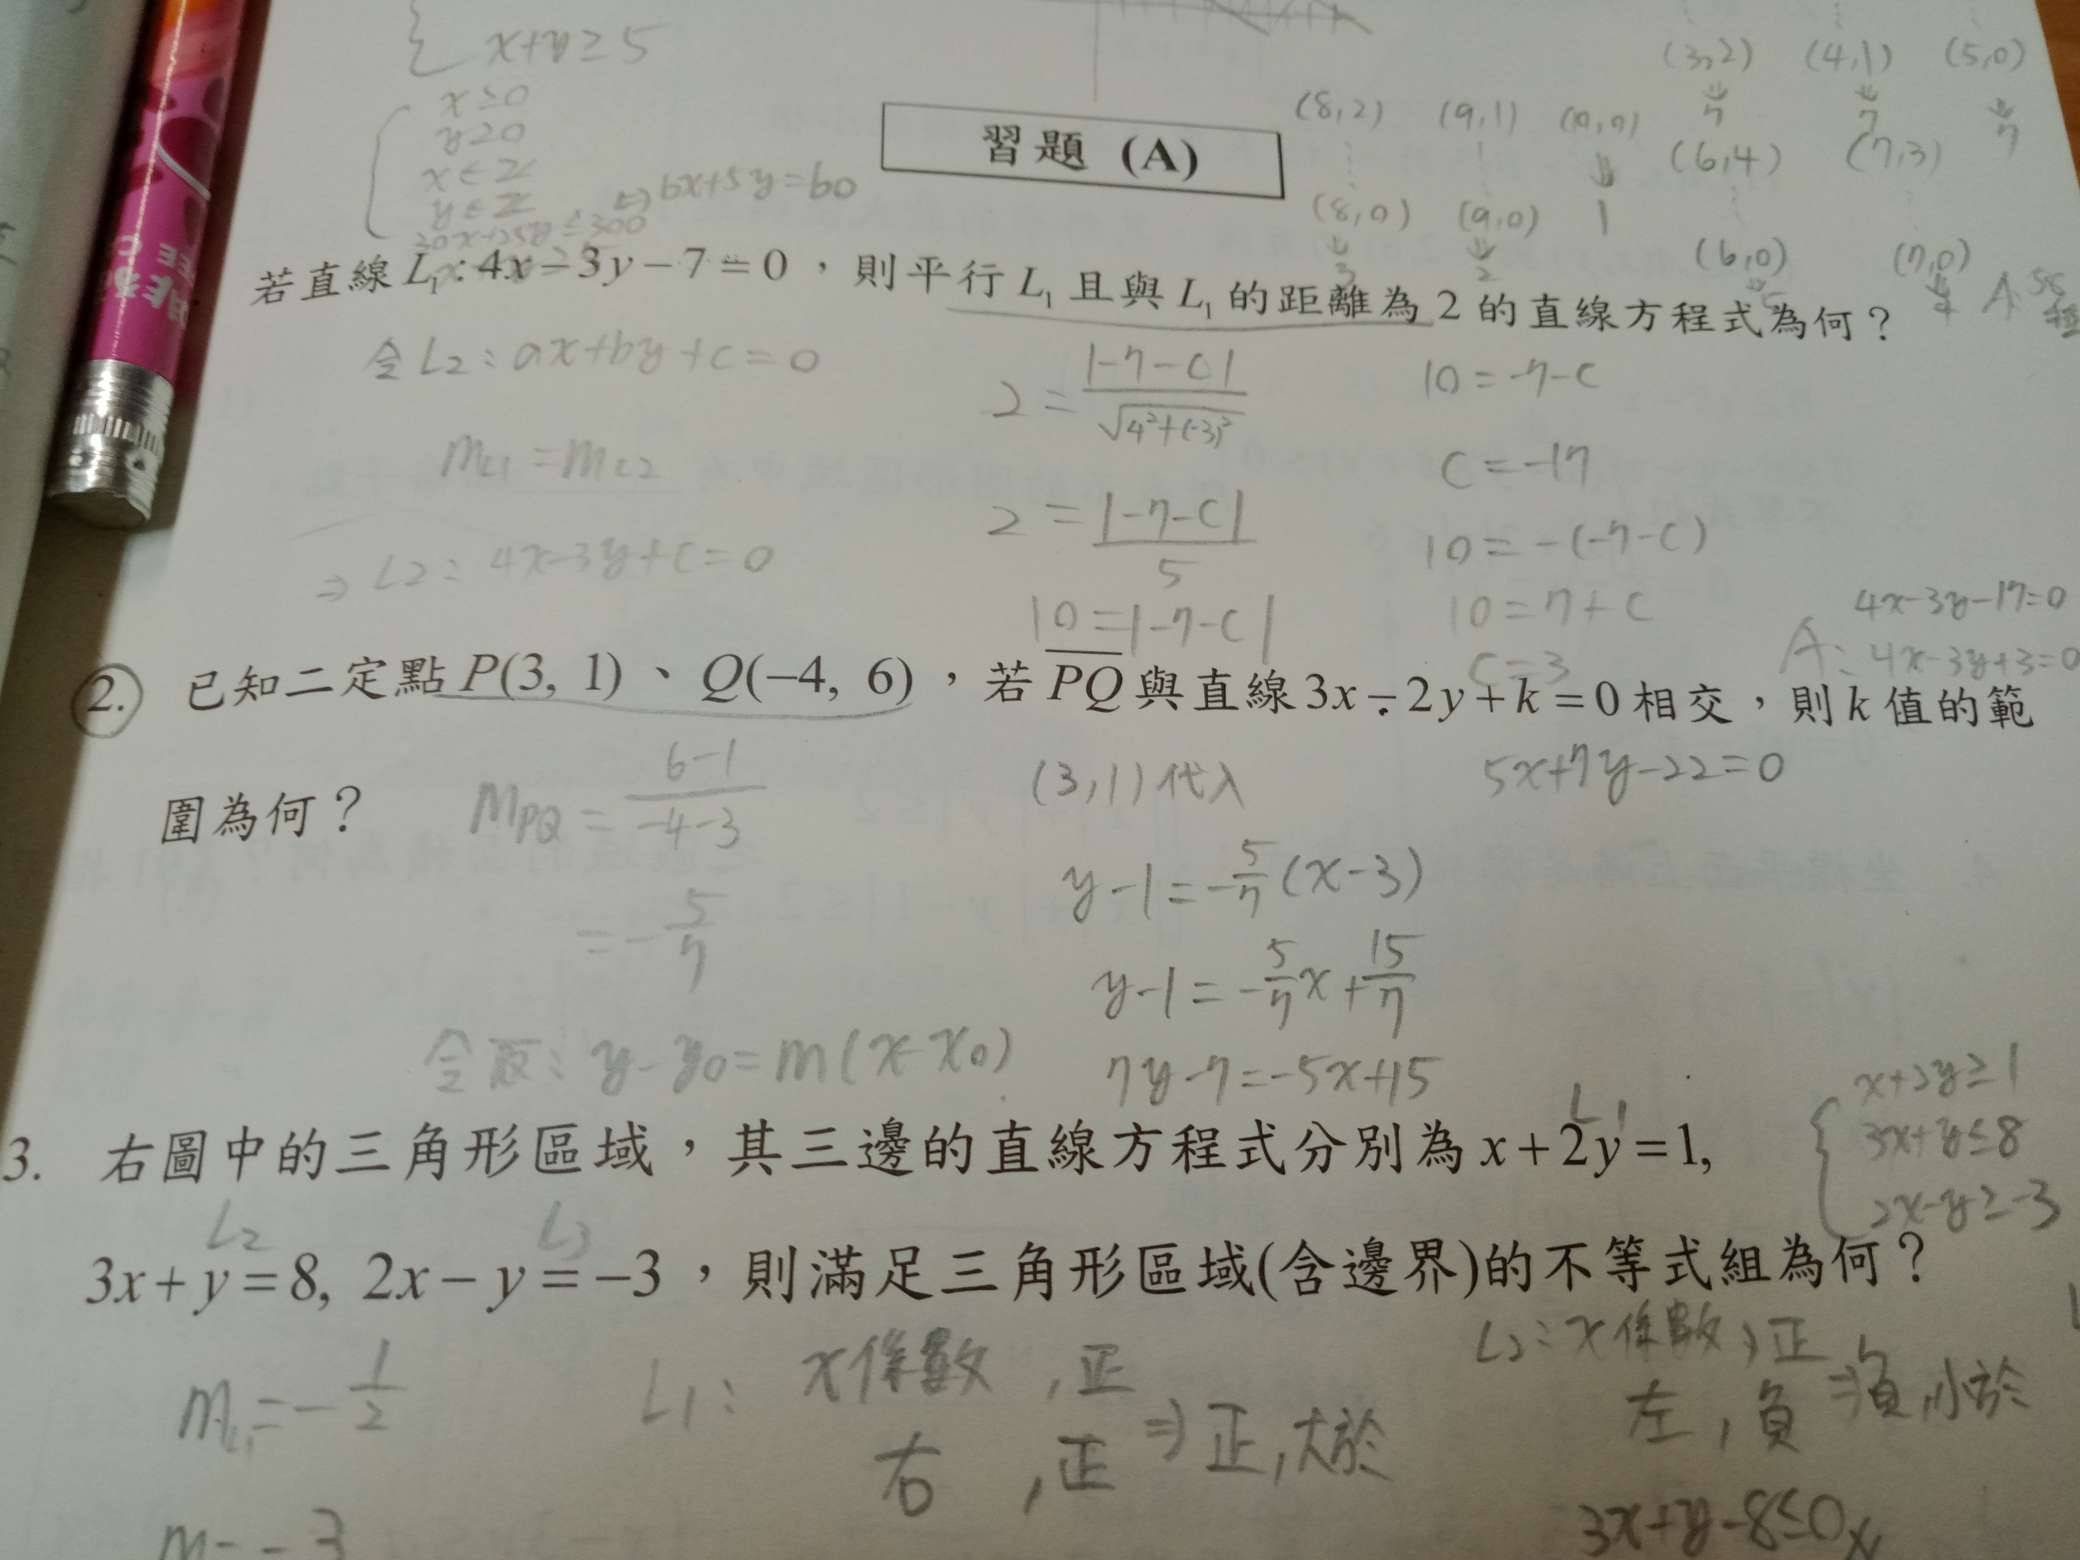 x+y≥5
x≥0
y≥0
x∈Z
y∈Z
20x+25y≤300
⇔6x+5y=60
(3,2) (4,1) (5,0)
(8,2) (9,1) (10,0)
7 7 7
(6,4) (7,3)
(8,0) (9,0) 1
3 2
(6,0) (7,0)
5 4
習題 (A)
若直線 L₁:4x−3y−7=0，則平行 L₁ 且與 L₁ 的距離為 2 的直線方程式為何？
令L2:ax+by+c=0
mL1=mL2
⇒L2:4x-3y+c=0
2=|-7-c|/√4²+(-3)²
2=|-7-c|/5
10=|-7-c|
10=-7-c
c=-17
10=-(-7-c)
10=7+c
c=3
4x-3y-17=0
A:4x-3y+3=0
2. 已知二定點 P(3, 1)、Q(−4, 6)，若 PQ 與直線 3x−2y+k=0 相交，則 k 值的範
圍為何？
mPQ=6-1/-4-3
=-5/7
y-y₀=m(x-x₀)
(3,1)代入
y-1=-5/7(x-3)
y-1=-5/7x+15/7
7y-7=-5x+15
5x+7y-22=0
3. 右圖中的三角形區域，其三邊的直線方程式分別為 x+2y=1,
L1
3x+y=8, 2x−y=−3，則滿足三角形區域(含邊界)的不等式組為何？
L2 L3
x+2y≥1
3x+y≤8
2x-y≥-3
mL1=-1/2
L1: x係數,正
右,正⇒正,大於
L2:x係數,正
左,負⇒負,小於
3x+y-8≤0
m=-3